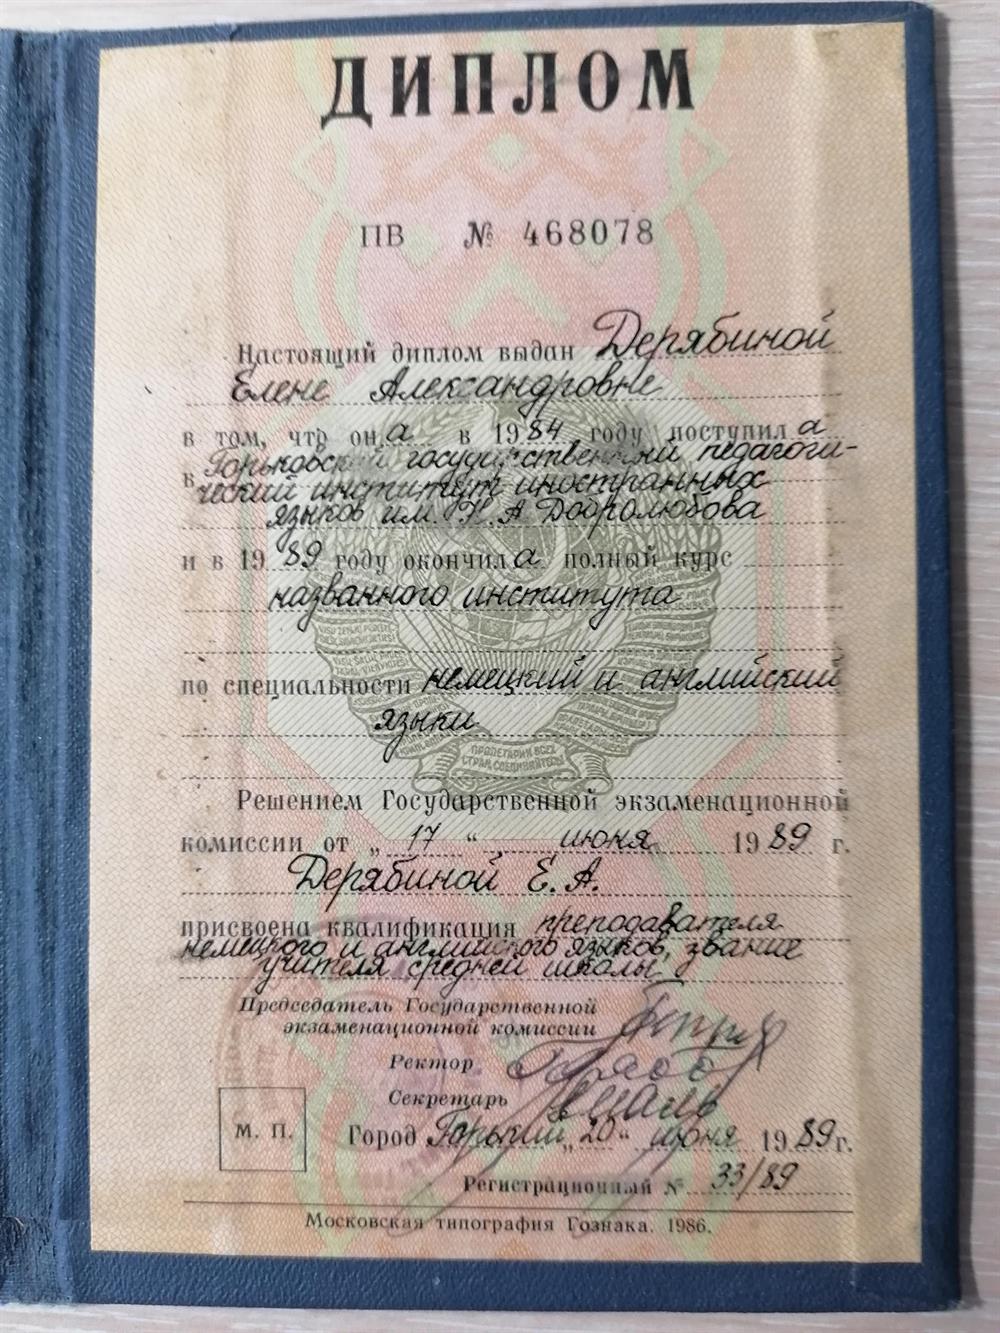 ДИПЛОМ
ПВ № 468078
Настоящий диплом выдан Дерябиной
Елене Александровне
в том, что она в 1984 году поступила
в Горьковский государственный педагоги-
ческий институт иностранных
языков им. Н. А Добролюбова
и в 1989 году окончила полный курс
названного института
по специальности немецкий и английский
языки
ПРОЛЕТАРИИ ВСЕХ
СТРАН, СОЕДИНЯЙТЕСЬ!
Решением Государственной экзаменационной
комиссии от „17“ июня 1989 г.
Дерябиной Е. А.
присвоена квалификация преподавателя
немецкого и английского языков, звание
учителя средней школы
Председатель Государственной
экзаменационной комиссии
Ректор
Секретарь
М. П.
Город Горький „20“ июня 1989 г.
Регистрационный № 33/89
Московская типография Гознака. 1986.